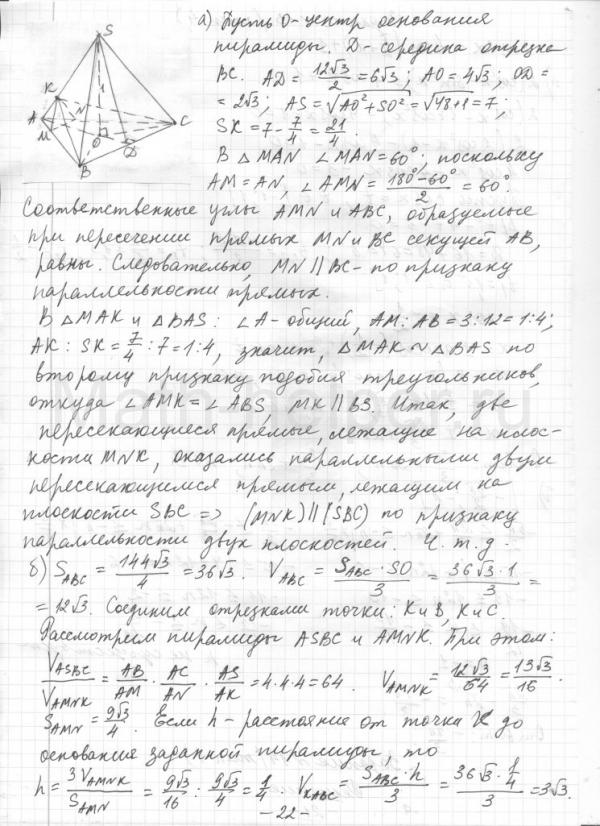 S
K
N
A
M
O
D
C
B
а) Пусть O - центр основания
пирамиды. D - середина отрезка
BC. AD = 12√3/2 = 6√3; AO = 4√3; OD =
= 2√3; AS = √(AO²+SO²) = √(48+1) = 7;
SK = 7 - 7/4 = 21/4.
В △MAN ∠MAN = 60°, поскольку
AM = AN, ∠AMN = (180°-60°)/2 = 60°.
Соответственные углы AMN и ABC, образуемые
при пересечении прямых MN и BC секущей AB,
равны. Следовательно, MN || BC - по признаку
параллельности прямых.
В △MAK и △BAS: ∠A - общий, AM : AB = 3 : 12 = 1 : 4;
AK : SK = 7/4 : 7 = 1 : 4, значит, △MAK ~ △BAS по
второму признаку подобия треугольников,
откуда ∠AMK = ∠ABS, MK || BS. Итак, две
пересекающиеся прямые, лежащие на плос-
кости MNK, оказались параллельными двум
пересекающимся прямым, лежащим на
плоскости SBC => (MNK) || (SBC) по признаку
параллельности двух плоскостей. Ч. т. д.
б) S_ABC = 144√3/4 = 36√3. V_ABC = S_ABC · SO/3 = 36√3 · 1/3 =
= 12√3. Соединим отрезками точки: K и B, K и C.
Рассмотрим пирамиды ASBC и AMNK. При этом:
V_ASBC/V_AMNK = AB/AM · AC/AN · AS/AK = 4·4·4 = 64. V_AMNK = 12√3/64 = 13√3/16.
S_AMN = 9√3/4. Если h - расстояние от точки K до
основания заданной пирамиды, то
h = 3V_AMNK/S_AMN = 9√3/16 : 9√3/4 = 1/4. V_KABC = S_ABC · h/3 = 36√3 · 1/4/3 = 3√3.
- 22 -